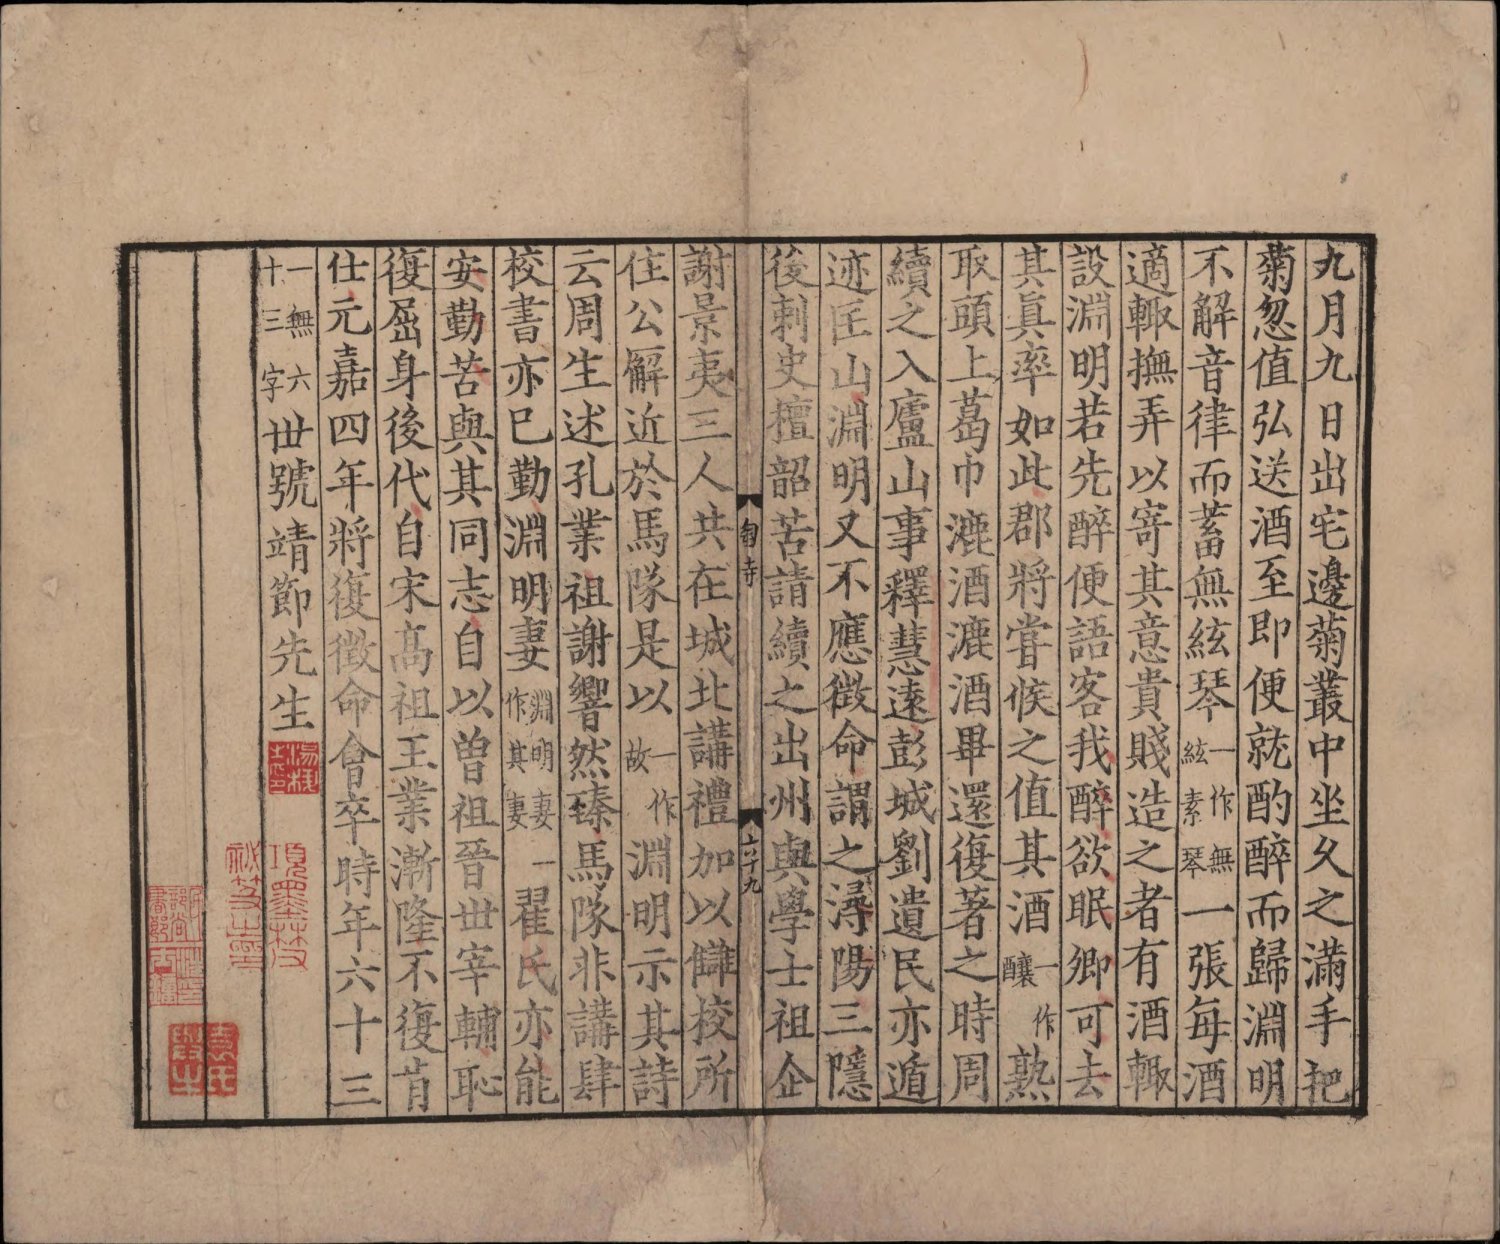 九月九日出宅邊菊叢中坐久之滿手把
菊忽值弘送酒至即便就酌醉而歸淵明
不解音律而蓄無絃琴一作無絃素琴一張每酒
適輙撫弄以寄其意貴賤造之者有酒輙
設淵明若先醉便語客我醉欲眠卿可去
其眞率如此郡將甞候之值其酒一作釀熟
取頭上葛巾漉酒漉酒畢還復著之時周
續之入廬山事釋慧遠彭城劉遺民亦遁
迹匡山淵明又不應徵命謂之潯陽三隱
後刺史檀韶苦請續之出州與學士祖企
匋寺
六十九
謝景夷三人共在城北講禮加以讎校所
住公廨近於馬隊是以一作故淵明示其詩
云周生述孔業祖謝響然臻馬隊非講肆
校書亦已勤淵明妻一作淵明妻其妻翟氏亦能
安勤苦與其同志自以曾祖晉丗宰輔恥
復屈身後代自宋髙祖王業漸隆不復肯
仕元嘉四年將復徵命會卒時年六十三
一無六十三字丗號靖節先生
項墨林
祕笈之印